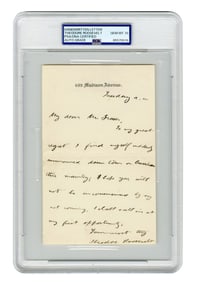 HANDWRITTEN LETTER
THEODORE ROOSEVELT
PSA/DNA CERTIFIED
AUTO GRADE
GEM MT 10
422 Madison Avenue.
Tuesday
My dear Mr.
To my great
regret I find myself
down town on business
this morning; I hope you will
not be inconvenienced by my
not coming. I shall call in at
my first opportunity.
Yours
Theodore Roosevelt